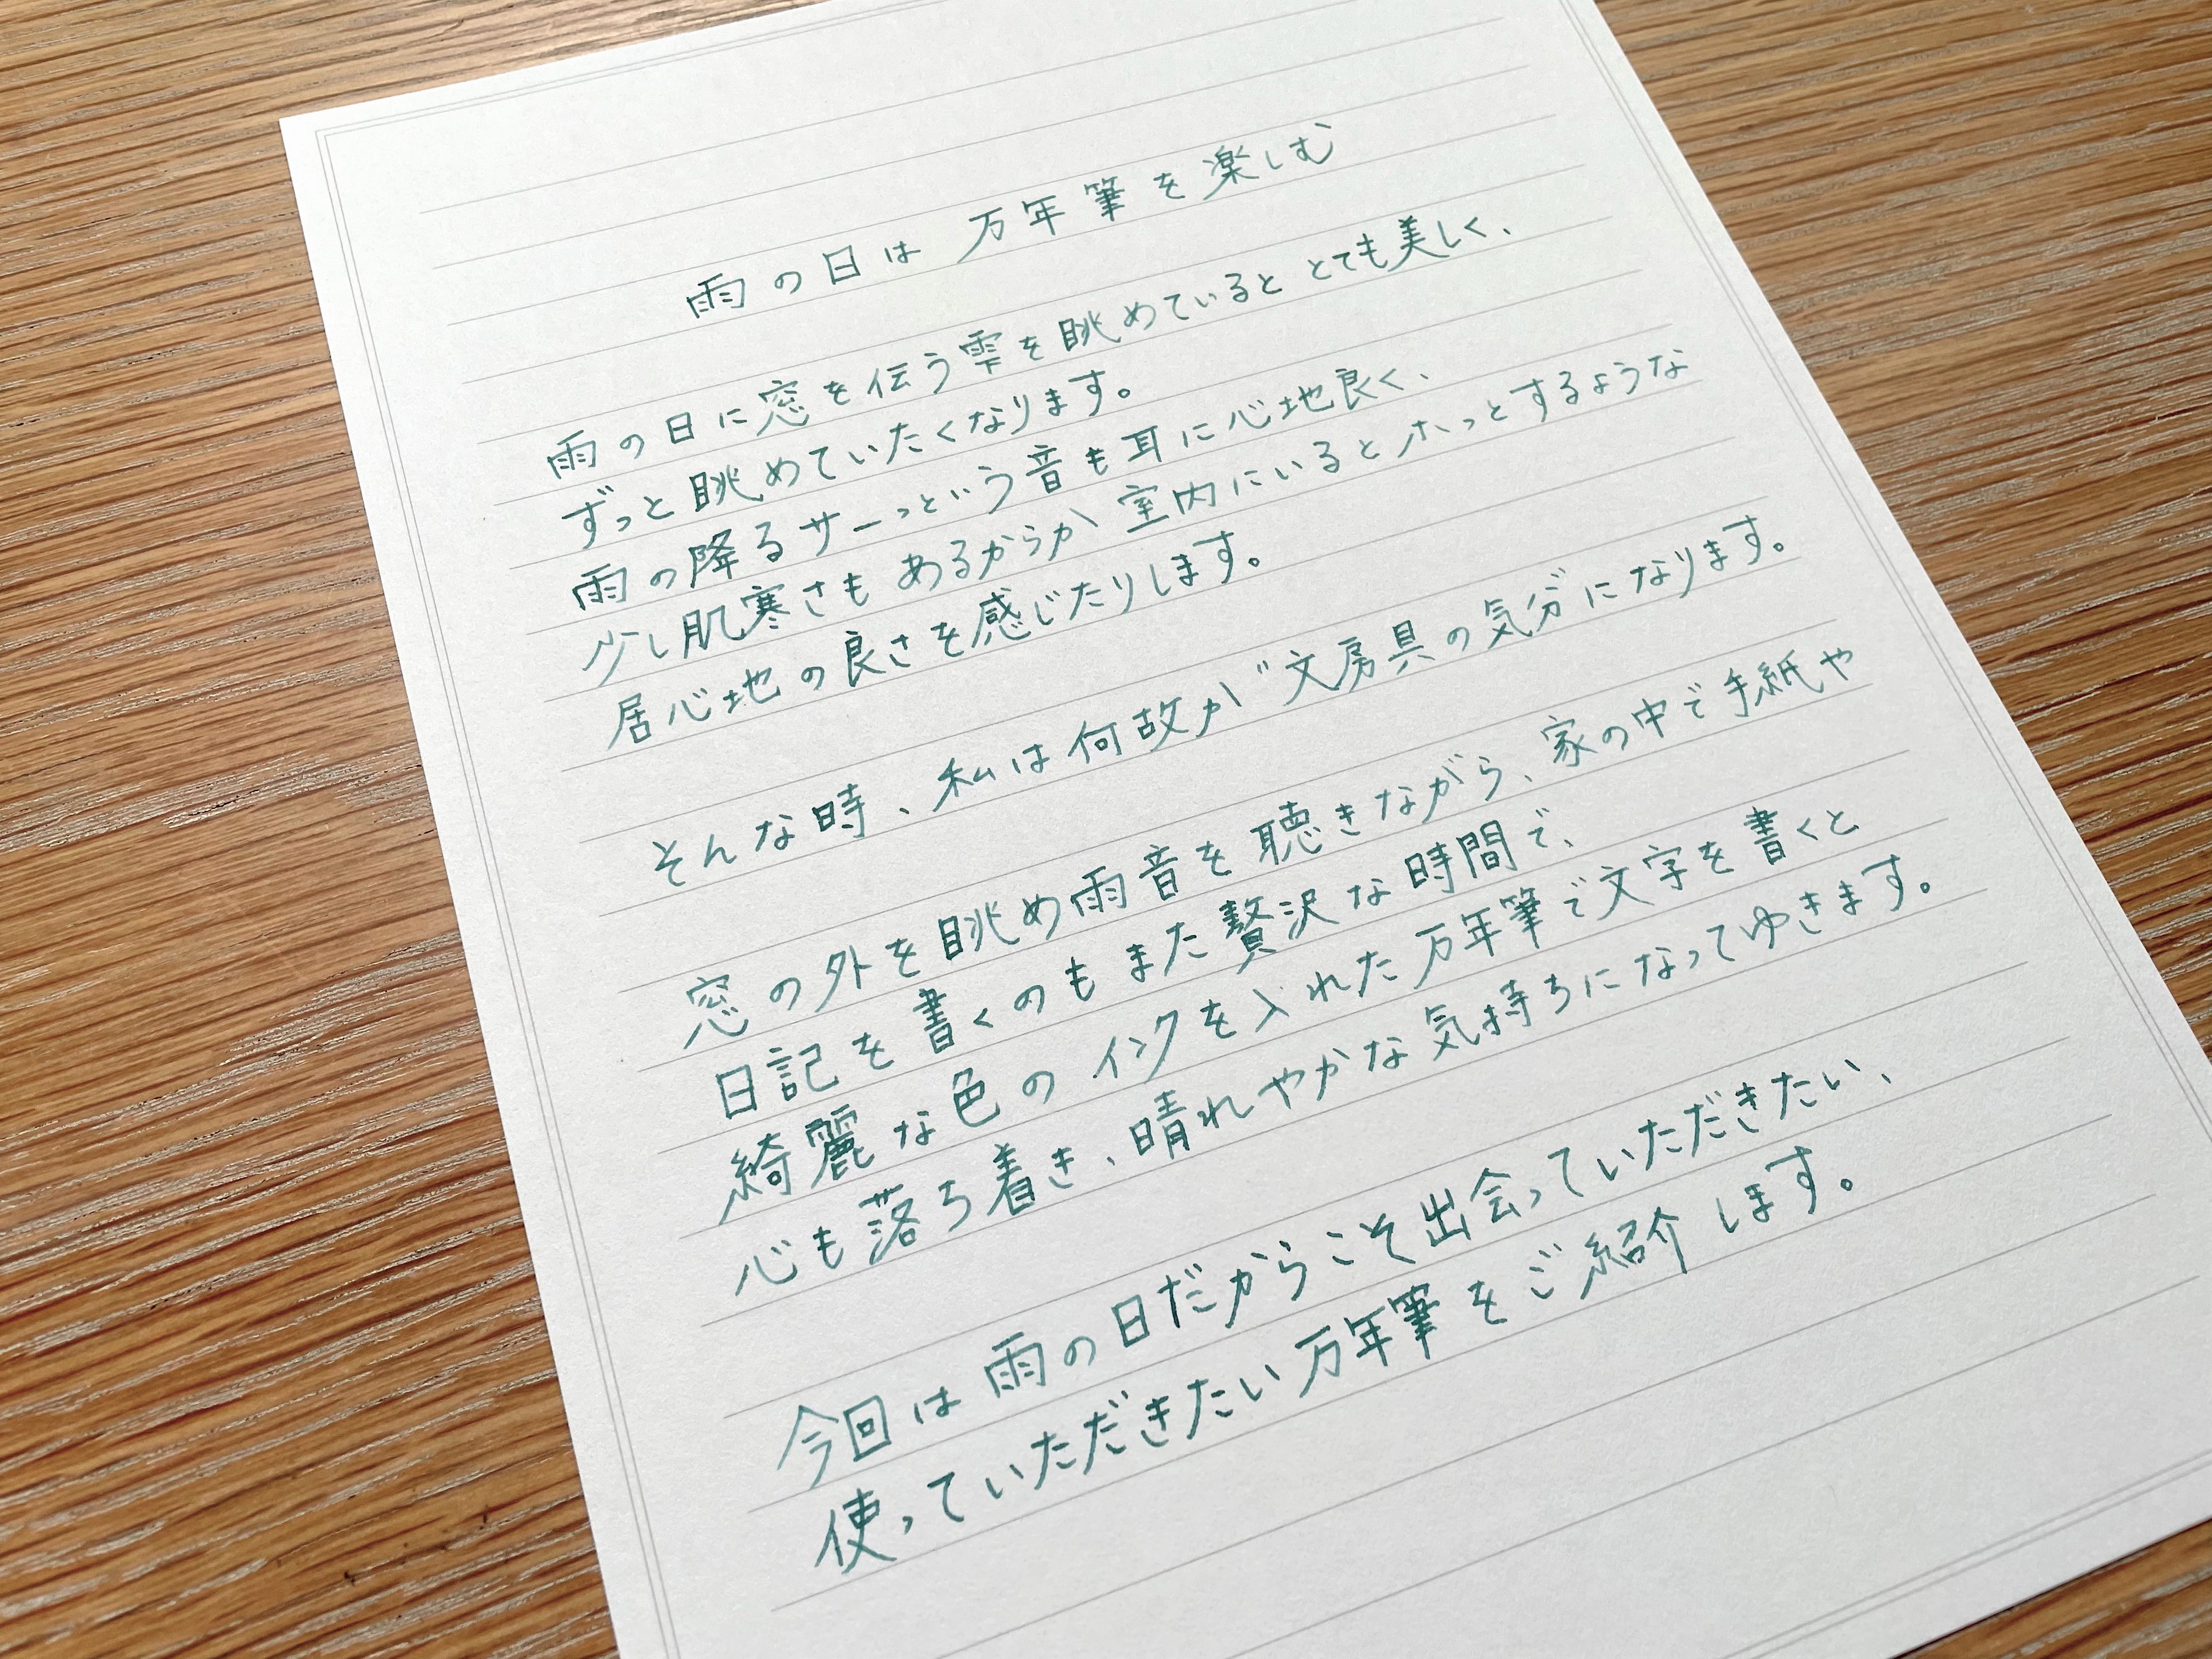 雨の日は 万年筆を楽しむ
雨の日に窓を伝う雫を眺めていると とても美しく、
ずっと眺めていたくなります。
雨の降るサーっという音も耳に心地良く、
少し肌寒さも あるからか 室内にいるとホっとするような
居心地の良さを感じたりします。
そんな時、私は何故か゛文房具の気分になります。
窓の外を眺め雨音を聴きながら、家の中で手紙や
日記を書くのもまた贅沢な時間で、
綺麗な色のインクを入れた万年筆で文字を書くと
心も落ち着き、晴れやかな気持ちになってゆきます。
今回は雨の日だからこそ出会っていただきたい、
使っていただきたい万年筆をご紹介します。